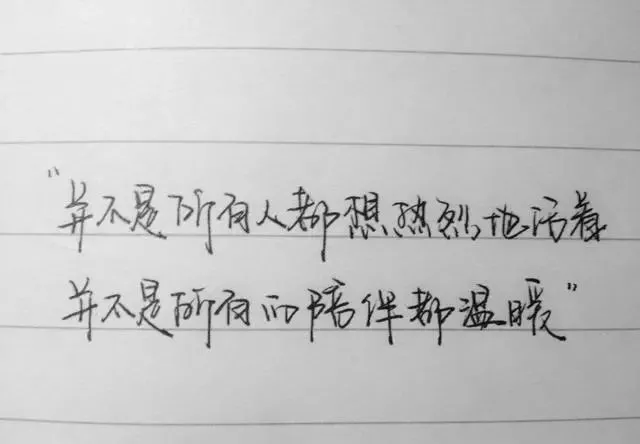 "并不是所有人都想热烈地活着
并不是所有的陪伴都温暖"